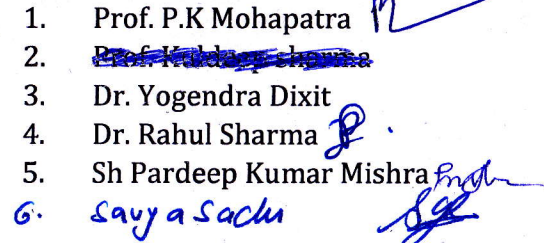 1. Prof. P.K Mohapatra
2. Prof. Kuldeep sharma
3. Dr. Yogendra Dixit
4. Dr. Rahul Sharma
5. Sh Pardeep Kumar Mishra
6. Savyasachi